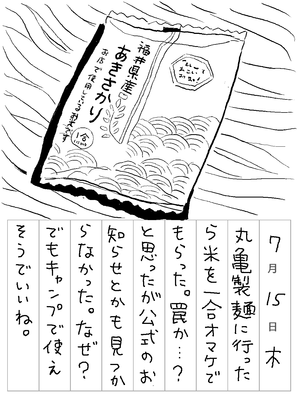 福井県産
あきさかり
お店で使用しているお米です
1合
7月15日木
丸亀製麺に行った
ら米を一合オマケで
もらった。罠か…?
と思ったが公式のお
知らせとかも見つか
らなかった。なぜ?
でもキャンプで使え
そうでいいね。